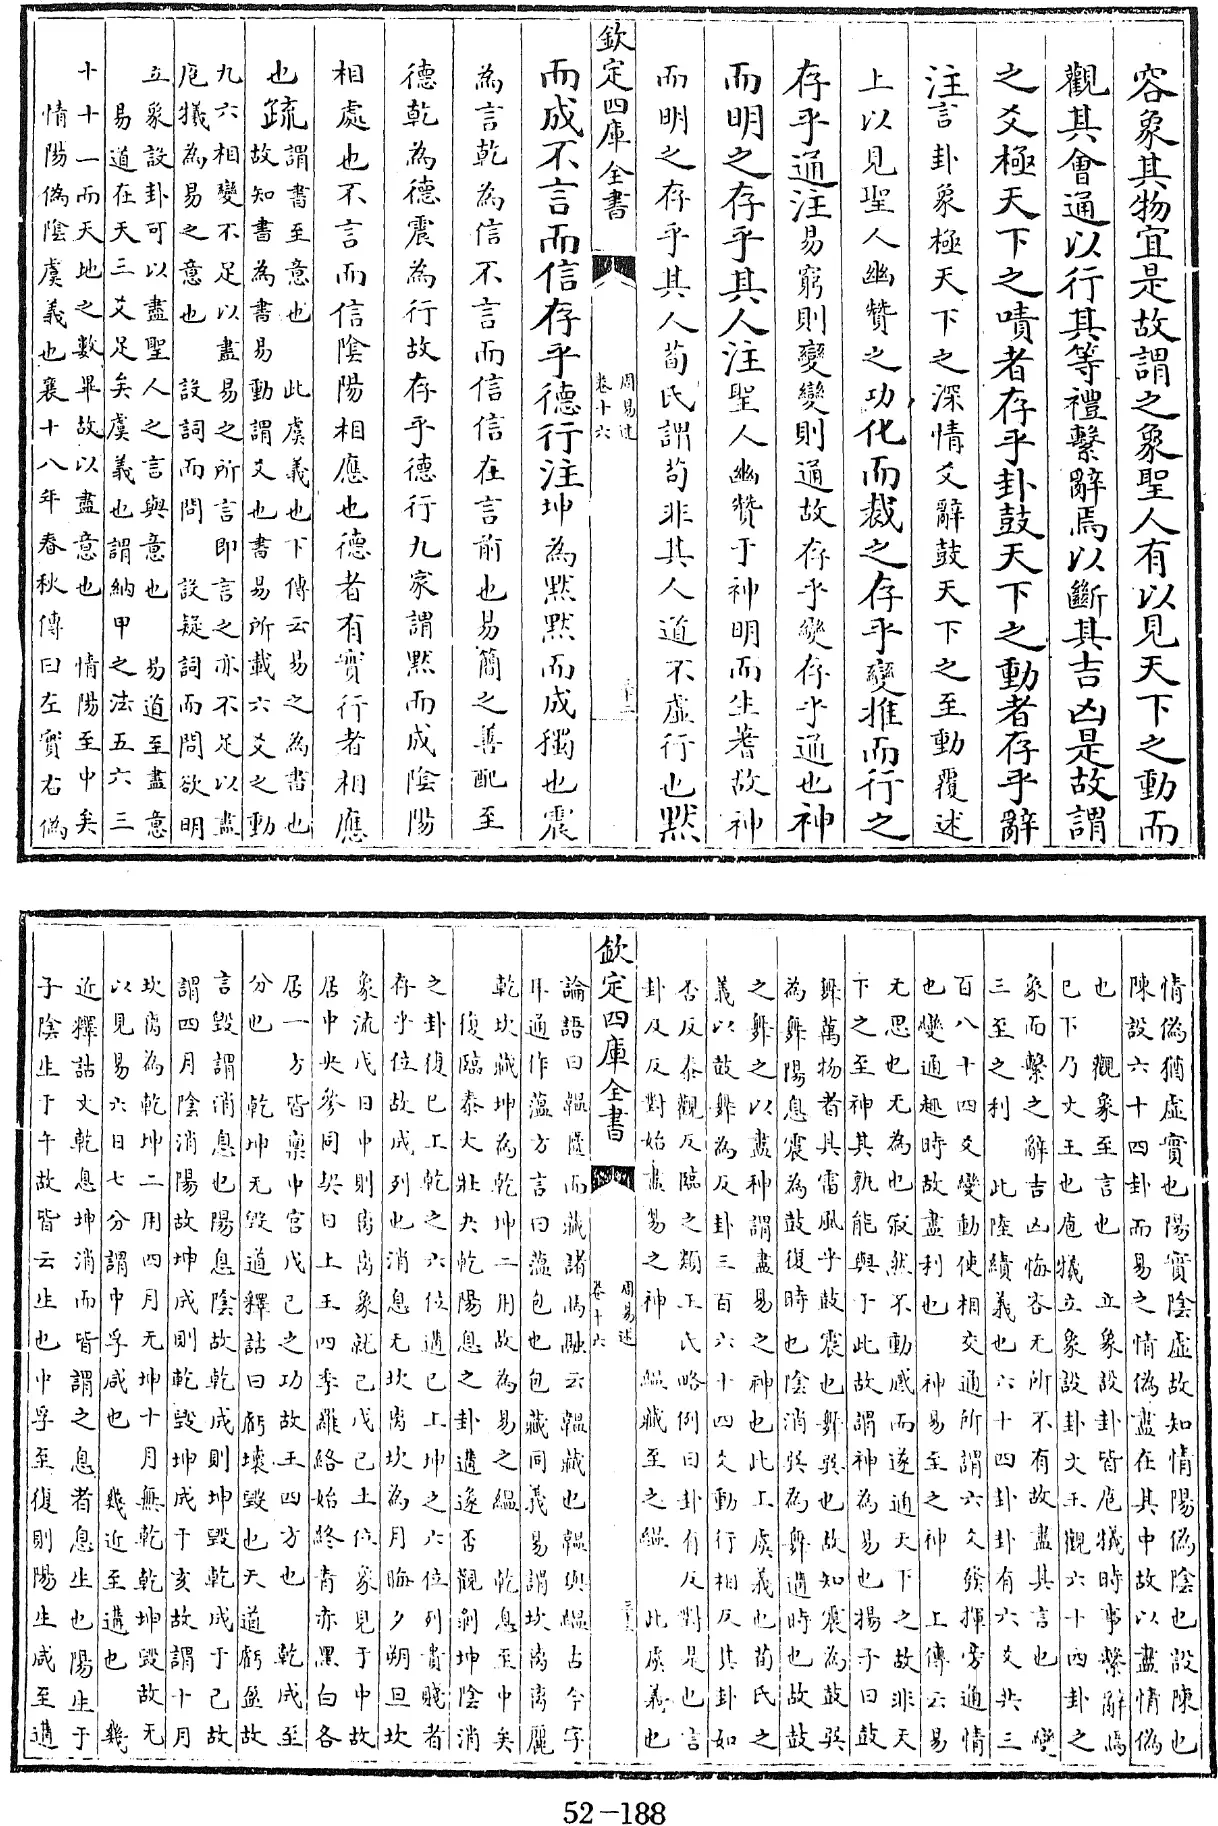 容象其物宜是故謂之象聖人有以見天下之動而
觀其會通以行其等禮繫辭焉以斷其吉凶是故謂
之爻極天下之嘖者存乎卦鼓天下之動者存乎辭
注言卦象極天下之深情爻辭鼓天下之至動覆述
上以見聖人幽贊之功化而裁之存乎變推而行之
存乎通注易窮則變變則通故存乎變存乎通也神
而明之存乎其人注聖人幽贊于神明而生蓍故神
而明之存乎其人荀氏謂苟非其人道不虛行也黙
欽定四庫全書
周易述
卷十六
而成不言而信存乎德行注坤為黙黙而成獨也震
為言乾為信不言而信信在言前也易簡之善配至
德乾為德震為行故存乎德行九家謂黙而成陰陽
相處也不言而信陰陽相應也德者有實行者相應
也疏謂書至意也 此虞義也下傳云易之為書也
故知書為書易動謂爻也書易所載六爻之動
九六相變不足以盡易之所言即言之亦不足以盡
庖犧為易之意也 設詞而問 設疑詞而問欲明
立象設卦可以盡聖人之言與意也 易道至盡意
易道在天三爻足矣虞義也謂納甲之法五六三
十十一而天地之數畢故以盡意也 情陽至中矣
情陽偽陰虞義也襄十八年春秋傳曰左實右偽
情偽猶虛實也陽實陰虛故知情陽偽陰也設陳也
陳設六十四卦而易之情偽盡在其中故以盡情偽
也 觀象至言也 立象設卦皆庖犧時事繫辭焉
巳下乃文王也庖犧立象設卦文王觀六十四卦之
象而繫之辭吉凶悔吝无所不有故盡其言也 變
三至之利 此陸績義也六十四卦卦有六爻共三
百八十四爻變動使相交通所謂六爻發揮旁通情
也變通趣時故盡利也 神易至之神 上傳云易
无思也无為也寂然不動感而遂通天下之故非天
下之至神其孰能與于此故謂神為易也揚子曰鼓
舞萬物者其雷風乎鼓震也舞巽也故知震為鼓巽
為舞陽息震為鼓復時也陰消巽為舞遘時也故鼓
之舞之以盡神謂盡易之神也此上虞義也荀氏之
義以鼓舞為反卦三百六十四爻動行相反其卦如
否反泰觀反臨之類王氏略例曰卦有反對是也言
卦及反對始盡易之神 縕藏至之縕 此虞義也
欽定四庫全書
周易述
卷十六
論語曰韞匵而藏諸馬融云韞藏也韞與縕古今字
耳通作蘊方言曰蘊包也包藏同義易謂坎離離麗
乾坎藏坤為乾坤二用故為易之縕 乾息至中矣
復臨泰大壯夬乾陽息之卦遘遂否觀剝坤陰消
之卦復巳上乾之六位遘巳上坤之六位列貴賤者
存乎位故成列也消息无坎離坎為月晦夕朔旦坎
象流戊日中則離離象就己戊己土位象見于中故
居中央參同契曰土王四季羅絡始終青赤黑白各
居一方皆稟中宮戊己之功故王四方也 乾成至
分也 乾坤无毀道釋詁曰虧壞毀也天道虧盈故
言毀謂消息也陽息陰故乾成則坤毀乾成于己故
謂四月陰消陽故坤成則乾毀坤成于亥故謂十月
坎離為乾坤二用四月无坤十月無乾乾坤毀故无
以見易六日七分謂中孚咸也 幾近至遘也 幾
近釋詁文乾息坤消而皆謂之息者息生也陽生于
子陰生于午故皆云生也中孚至復則陽生咸至遘
52-188